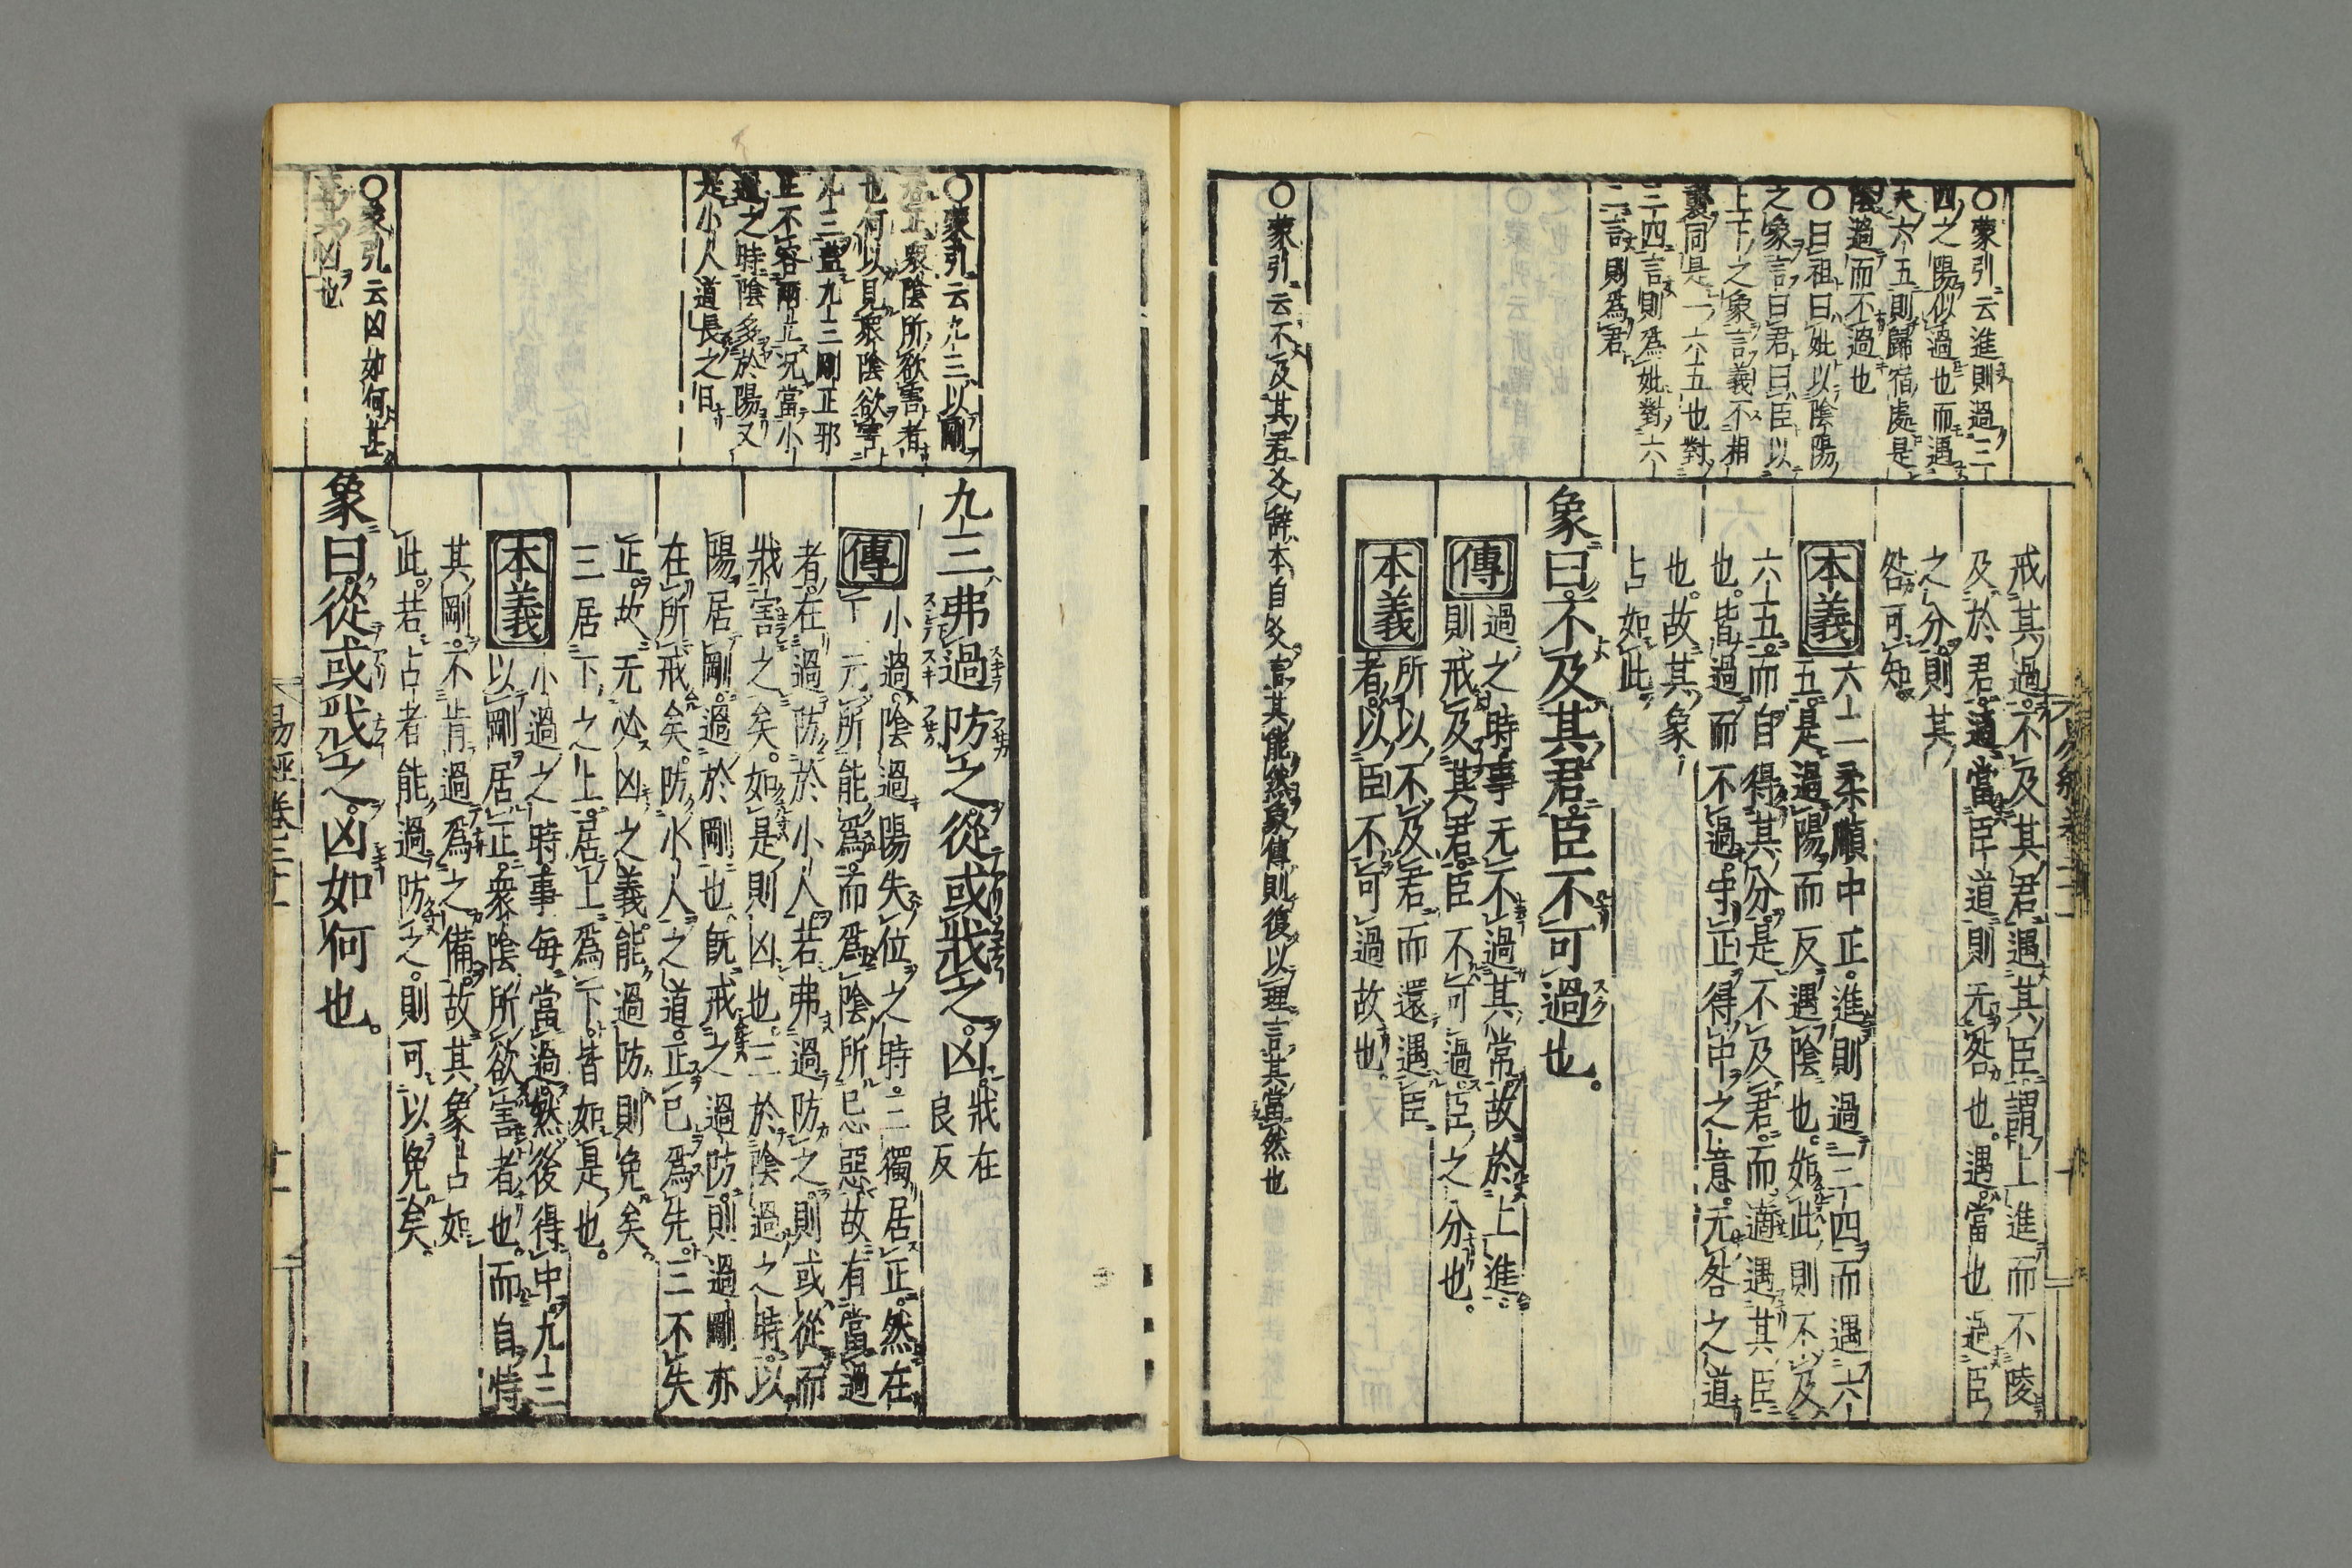 ○蒙引云進則過三
四之陽似過也而遇
夫六五則歸宿處是
陰過而不過也
○曰祖曰妣以陰陽
之象言曰君曰臣以
上下之象言義不相
襲同是一六五也對
三四言則爲妣對六
二言則爲君
戒其過不及其君遇其臣謂上進而不陵
及於君適當臣道則无咎也遇當也過臣
之分則其
咎可知
本義
六二柔順中正進則過三四而遇六
五是過陽而反遇陰也如此則不及
六五而自得其分是不及君而適遇其臣
也皆過而不過守正得中之意无咎之道
也故其象
占如此
象曰不及其君臣不可過也
傳
過之時事无不過其常故於上進
則戒及其君臣不可過臣之分也
本義
所以不及君而還遇臣
者以臣不可過故也
○蒙引云不及其君爻辞本自爻言其能然象傳則復以理言其當然也
○蒙引云九三以剛
居正衆陰所欲害者
也何以見衆陰欲害
九三蓋九三剛正邪
正不容兩立況當小
過之時陰多於陽又
是小人道長之日
九三弗過防之從或戕之凶
戕在
良反
傳
小過陰過陽失位之時三獨居正然在
下元所能爲而爲陰所忌惡故有當過
者在過防於小人若弗過防之則或從而
戕害之矣如是則凶也三於陰過之時以
陽居剛過於剛也旣戒之過防則過剛亦
在所戒矣防小人之道正己爲先三不失
正故无必凶之義能過防則免矣
三居下之上居上爲下皆如是也
本義
小過之時事每當過然後得中九三
以剛居正衆陰所欲害者也而自恃
其剛不肯過爲之備故其象占如
此若占者能過防之則可以免矣
○蒙引云凶如何甚
言其凶也
象曰從或戕之凶如何也
易經卷三十